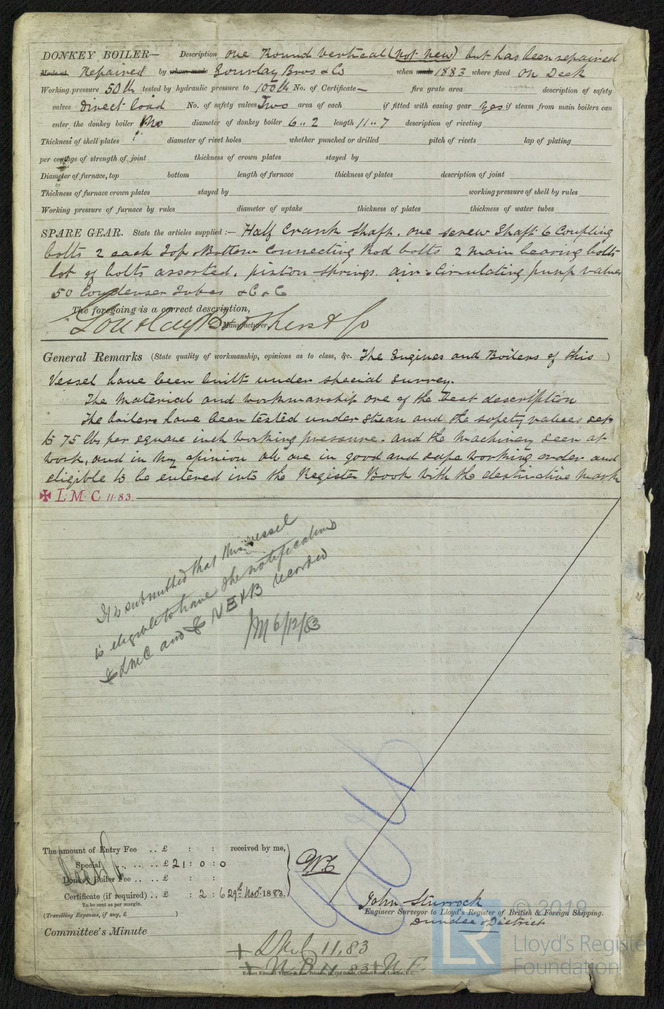 DONKEY BOILER— Description One Round Vertical (not new) but has been repaired
Repaired by Gourlay Bros & Co when made 1883 where fixed On Deck
Working pressure 50 lb tested by hydraulic pressure to 100 lb No. of Certificate — fire grate area description of safety
valves Direct Load No. of safety valves Two area of each if fitted with easing gear Yes if steam from main boilers can
enter the donkey boiler No diameter of donkey boiler 6..2 length 11..7 description of riveting
Thickness of shell plates diameter of rivet holes whether punched or drilled pitch of rivets lap of plating
per centage of strength of joint thickness of crown plates stayed by
Diameter of furnace, top bottom length of furnace thickness of plates description of joint
Thickness of furnace crown plates stayed by working pressure of shell by rules
Working pressure of furnace by rules diameter of uptake thickness of plates thickness of water tubes
SPARE GEAR. State the articles supplied:— Half Crank Shaft. One Screw Shaft 6 Coupling
bolts 2 each Top & Bottom Connecting Rod bolts 2 main bearing bolts
lot of bolts assorted. piston springs. air & Circulating pump valves
50 Condenser Tubes &c &c
The foregoing is a correct description,
Gourlay Brothers & Co Manufacturer.
General Remarks (State quality of workmanship, opinions as to class, &c. The Engines and Boilers of this )
Vessel have been built under special survey.
The material and workmanship are of the best description
The boilers have been tested under steam and the safety valves set
to 75 lbs per square inch working pressure. and the machinery seen at
work, and in my opinion all are in good and safe working order and
eligible to be entered into the Register Book with the distinctive mark
✠ L.M.C 11.83.
It is submitted that this vessel
is eligible to have the notification
✠ LMC and ✠ NE&B recorded
JM 6/12/83
The amount of Entry Fee .. £ : : received by me,
Special .. .. £ 21 : 0 : 0
Donkey Boiler Fee .. £ : :
Certificate (if required) .. £ : 2 : 6 29th Nov 1883
To be sent as per margin.
(Travelling Expenses, if any, £ )
John Sturrock
Engineer Surveyor to Lloyd's Register of British & Foreign Shipping.
Dundee District
Committee's Minute
+ LMC 11.83
+ N.B 11.83
© 2019
LR
Lloyd's Register
Foundation